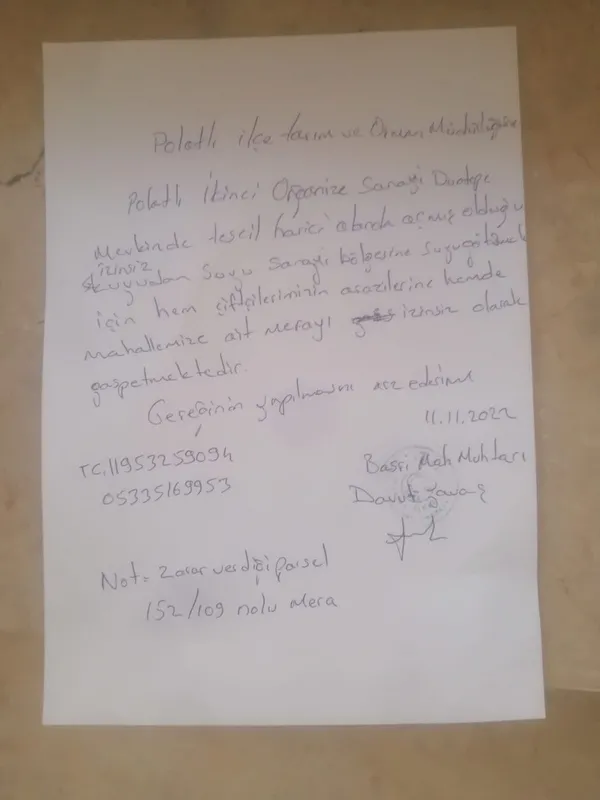 Polatlı ilçe tarım ve Orman Müdürlüğüne
Polatlı İkinci Organize Sanayi Duatepe
Mevkinde tescil harici alanda açmış olduğu
izinsiz
kuyudan Suyu Sanayi bölgesine Suyu götürmek
için hem çiftçilerimizin arazilerine hemde
mahallemize ait merayı izinsiz olarak
gaspetmektedir.
Gereğinin yapılmasını arz ederim
11.11.2022
TC.11953259094
05335169953
Basri Mah Muhtarı
Davut
Not = Zarar verdiği parsel
152/109 nolu mera